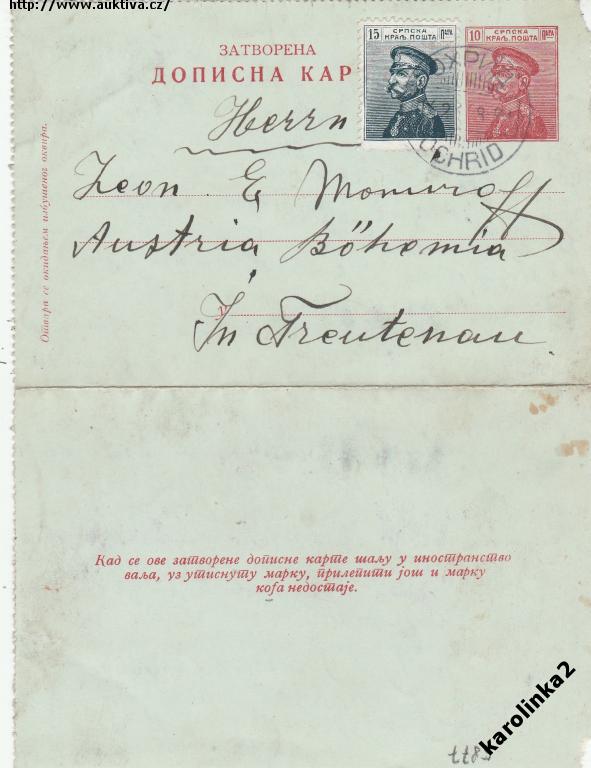 http://www.auktiva.cz/
ЗАТВОРЕНА
ДОПИСНА КАР
15 СРПСКА ПАРА
КРАЉ. ПОШТА
10 СРПСКА ПАРА
КРАЉ. ПОШТА
OCHRID
Herrn
Leon E
Austria Böhemia
In Treutenau
Отвара се окидањем избушеног оквира.
Кад се ове затворене дописне карте шаљу у иностранство
ваља, уз утиснуту марку, прилепити још и марку
која недостаје.
karolinka2